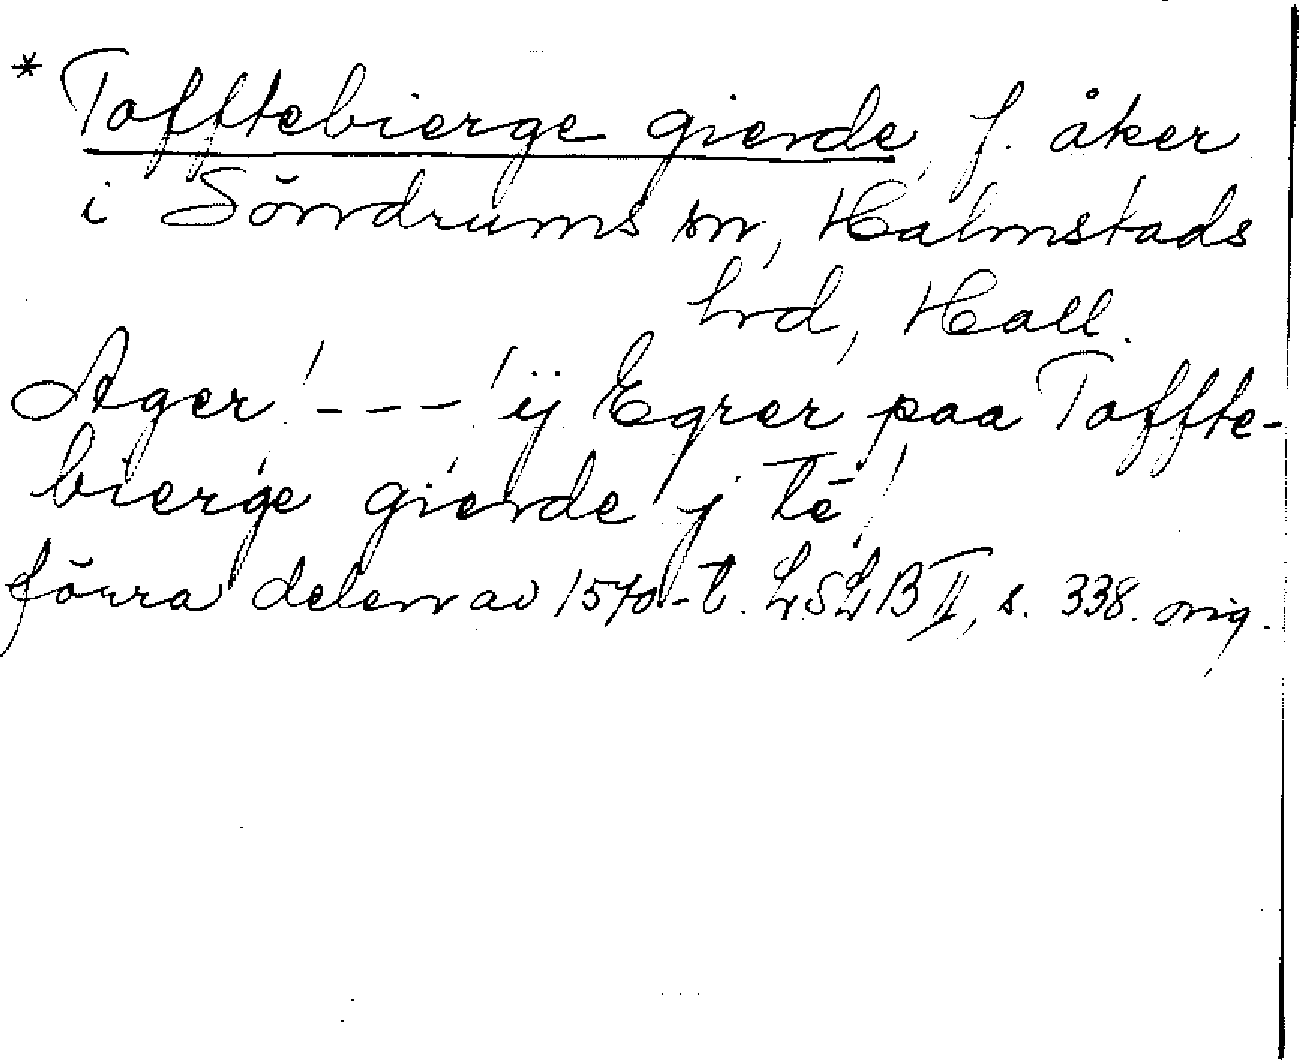 * Tofftebierge gierde, f. åker
i Söndrums sn, Halmstads
hrd, Hall.
Ager! --- 'ij Egrer paa Toffte-
bierge gierde j Tē!
förra delen av 1570-t. LSLB II, s. 338. orig.